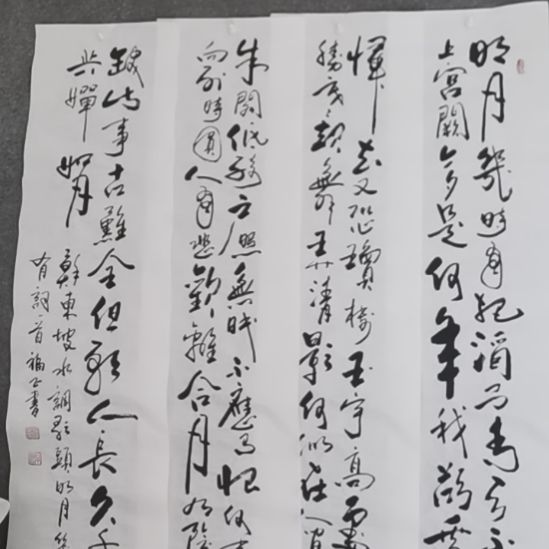 明月幾時有把酒问青天不
上宫闕今夕是何年我欲乘
歸去又恐瓊樓玉宇高處
勝寒起舞弄清影何似在人間
朱閣低绮户照無眠不應有恨何事
向别時圓人有悲歡離合月有陰
缺此事古難全但願人長久千
共嬋娟
東坡水調歌頭明月幾
有詞一首 書